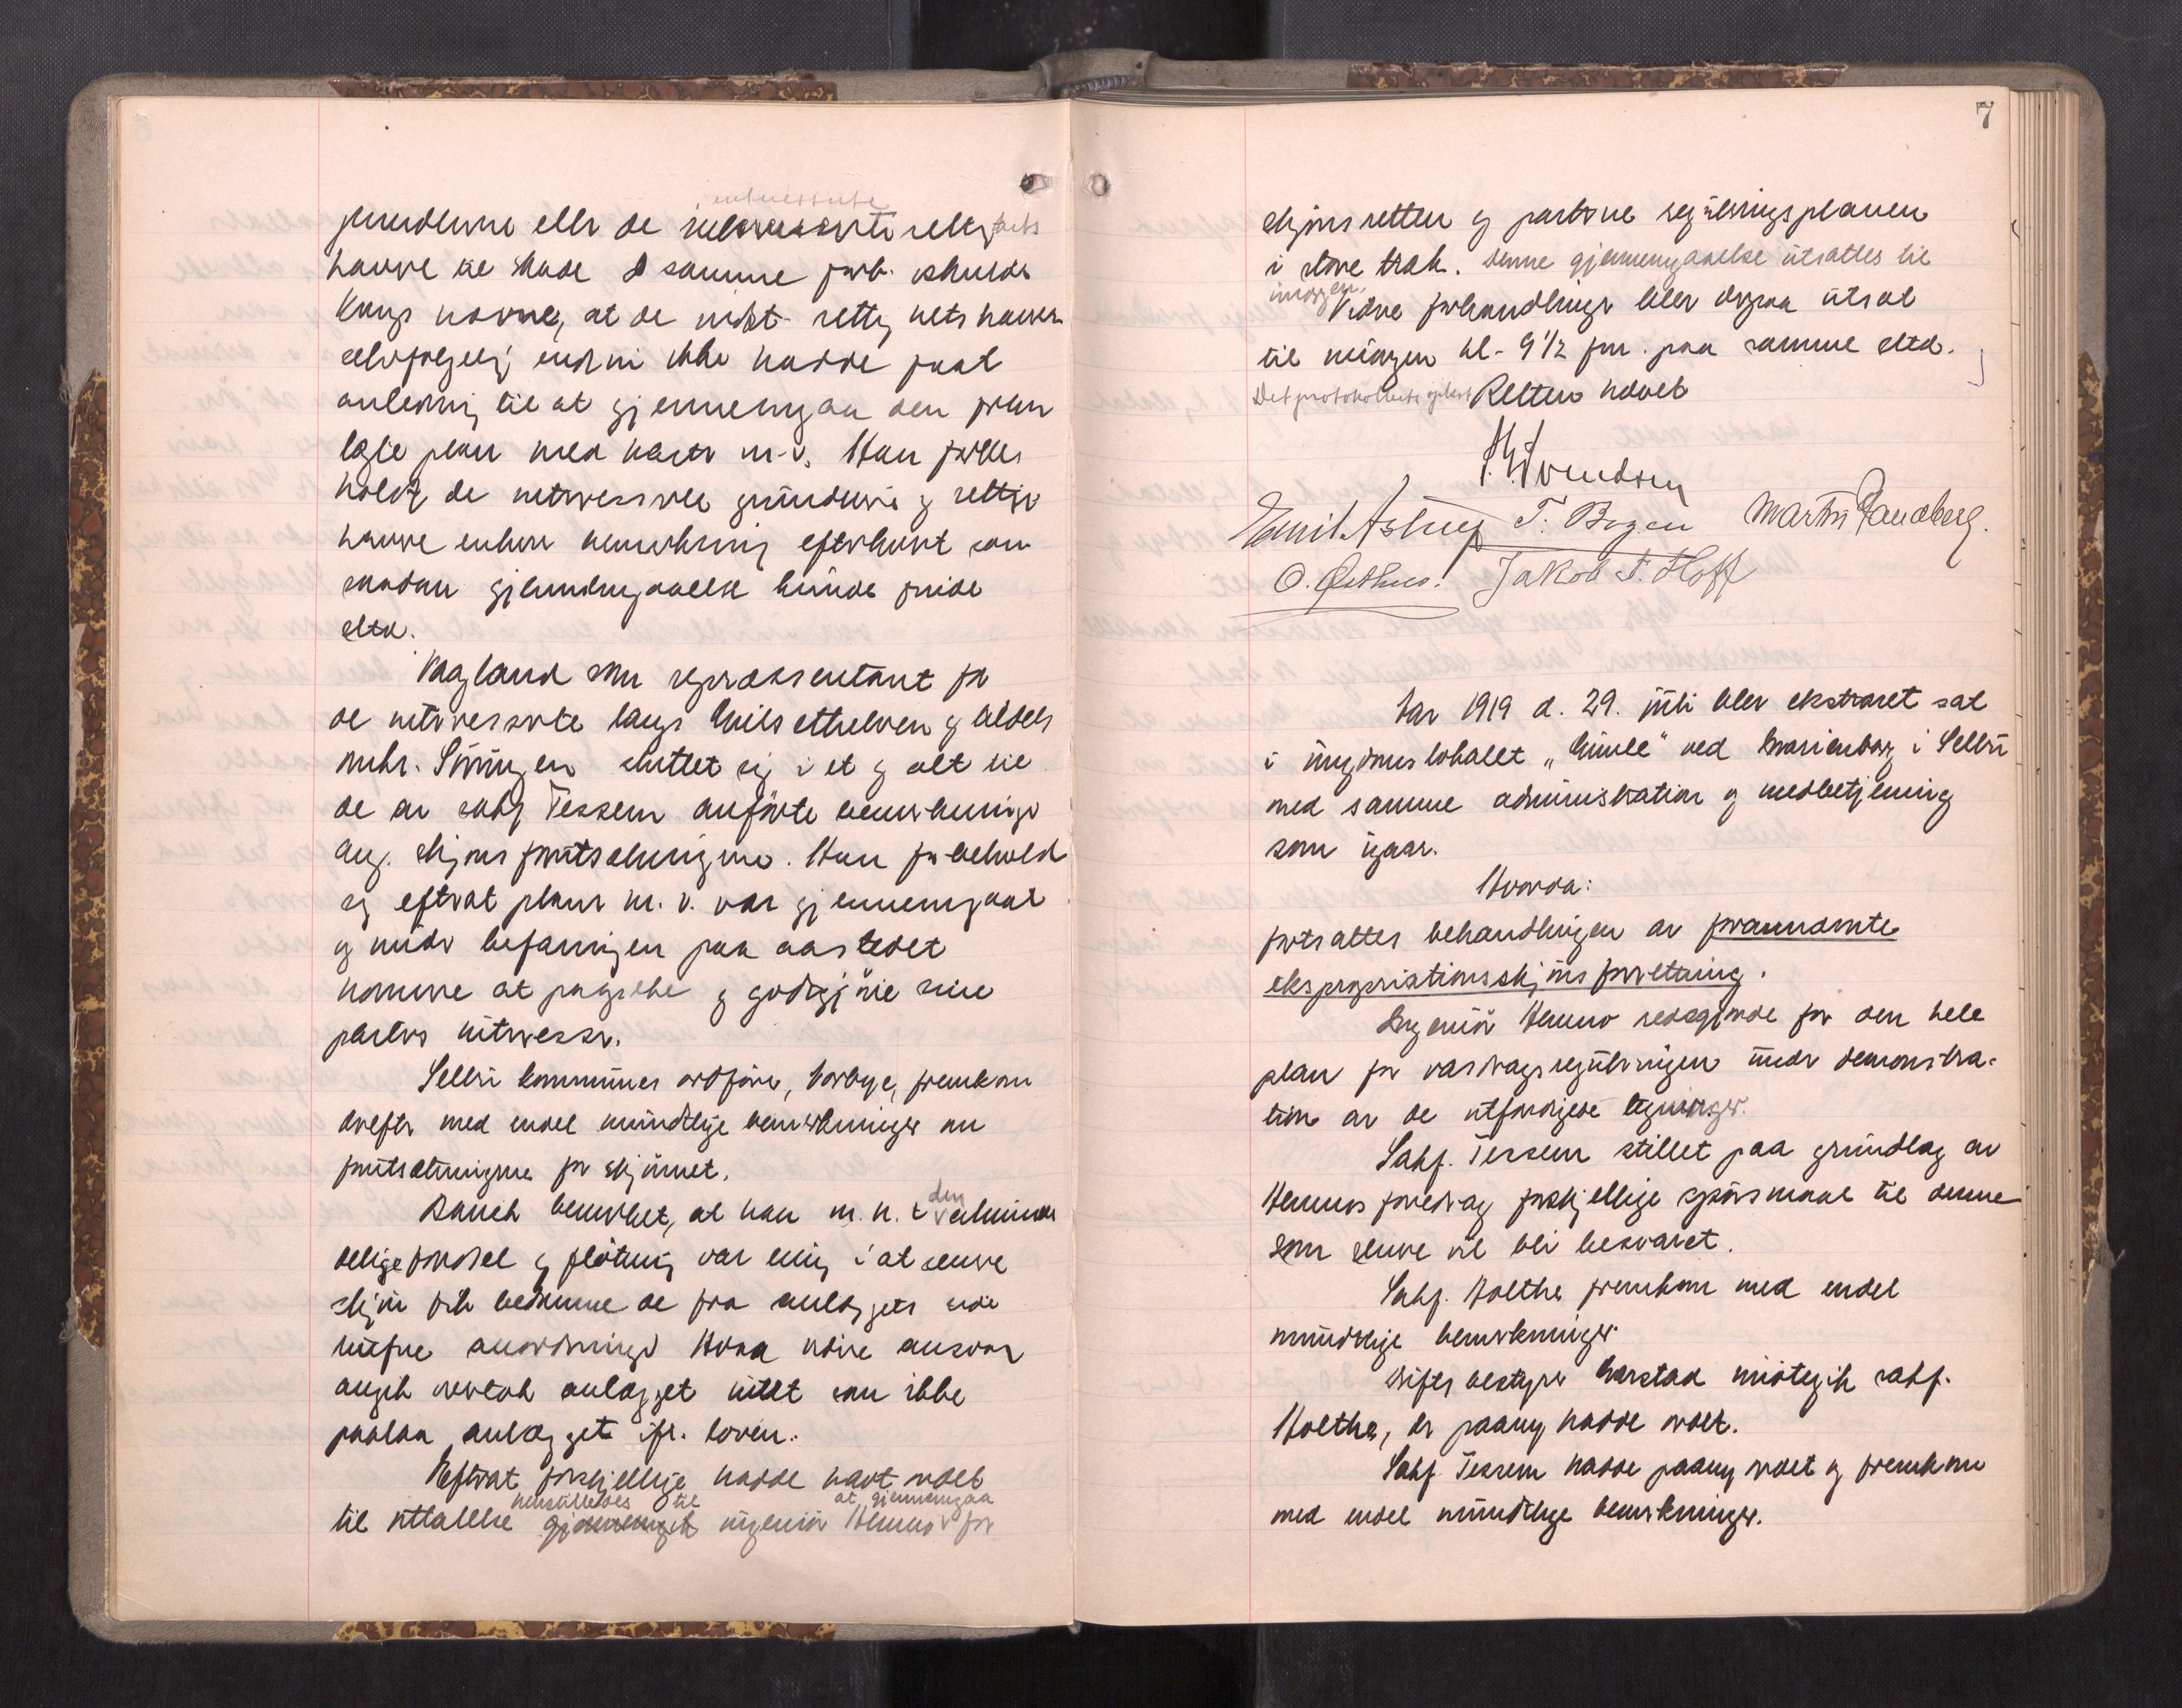 grundeierne eller de interesserte rettig hets
havere til skade. I samme forb.
nævne, at de
selvfølgelig endnu ikke hadde faat
anledning til at gjennemgaa den frem
lagte plan med karter m. v. Han forbe
holdt de interesserte grundeiere og rettig
havere enhver bemerkning efterhvert som
saadan gjennemgaaelse kunde finde
sted.
Vagland som repræsentant for
de interesserte langs Nilsethelven og
Sørungen sluttet sig i et og alt til
de av sakf. Tessem anførte bemerkninger
ang. skjønsforutsætningene. Han forbeholdt
sig efterat planen m. v. var gjennemgaat
og under befaringen paa aastedet
nærmere at paaberope og godtgjøre sine
parters interesser.
Selbu kommunes ordfører, Norbye, fremkom
derefter med endel mundtlige bemerkninger om
forutsætningene for skjønnet.
Rauch bemerket, at han m. h. t. den almin
delige færdsel og fløtning var enig i at denne
skjøn fik bedømme de fra anlæggets side
trufne anordninger. Hvad videre ansvar
angik overtok anlægget intet som ikke
paalaa anlægget ifl. loven.
Efterat forskjellige hadde havt ordet
til uttalelse henstilledes til ingeniør Hemus at gjennemgaa for
7
skjønsretten og parterne reguleringsplanen
i store træk. Denne gjennemgaaelse utsattes til
imorgen.
Videre forhandlinger blev derpaa utsat
til imorgen kl. 9 1/2 fm. paa samme sted.
Det protokollerte oplæst Retten hævet
Svendsen
Emil Astrup T. Bogen Martin Sandberg.
O. Østhus. Jakob T. Hoff
Aar 1919 d. 29. juli blev ekstraret sat
i ungdomslokalet "Gimle" ved Marienborg i Selbu
med samme administration og medbetjening
som igaar.
Hvorda:
fortsattes behandlingen av forannævnte
ekspropriationsskjønsforretning.
Ingeniør Hemus redegjorde for den hele
plan for vasdragsreguleringen under demonstra-
tion av de utfærdigede tegninger.
Sakf. Tessem stillet paa grundlag av
Hemus foredrag forskjellige spørsmaal til denne
som senere vil bli besvaret.
Sakf. Holthe fremkom med endel
mundtlige bemerkninger.
Driftsbestyrer Harstad imøtegik sakf.
Holthe, der paany hadde ordet.
Sakf. Tessem hadde paany ordet og fremkom
med endel mundtlige bemerkninger.